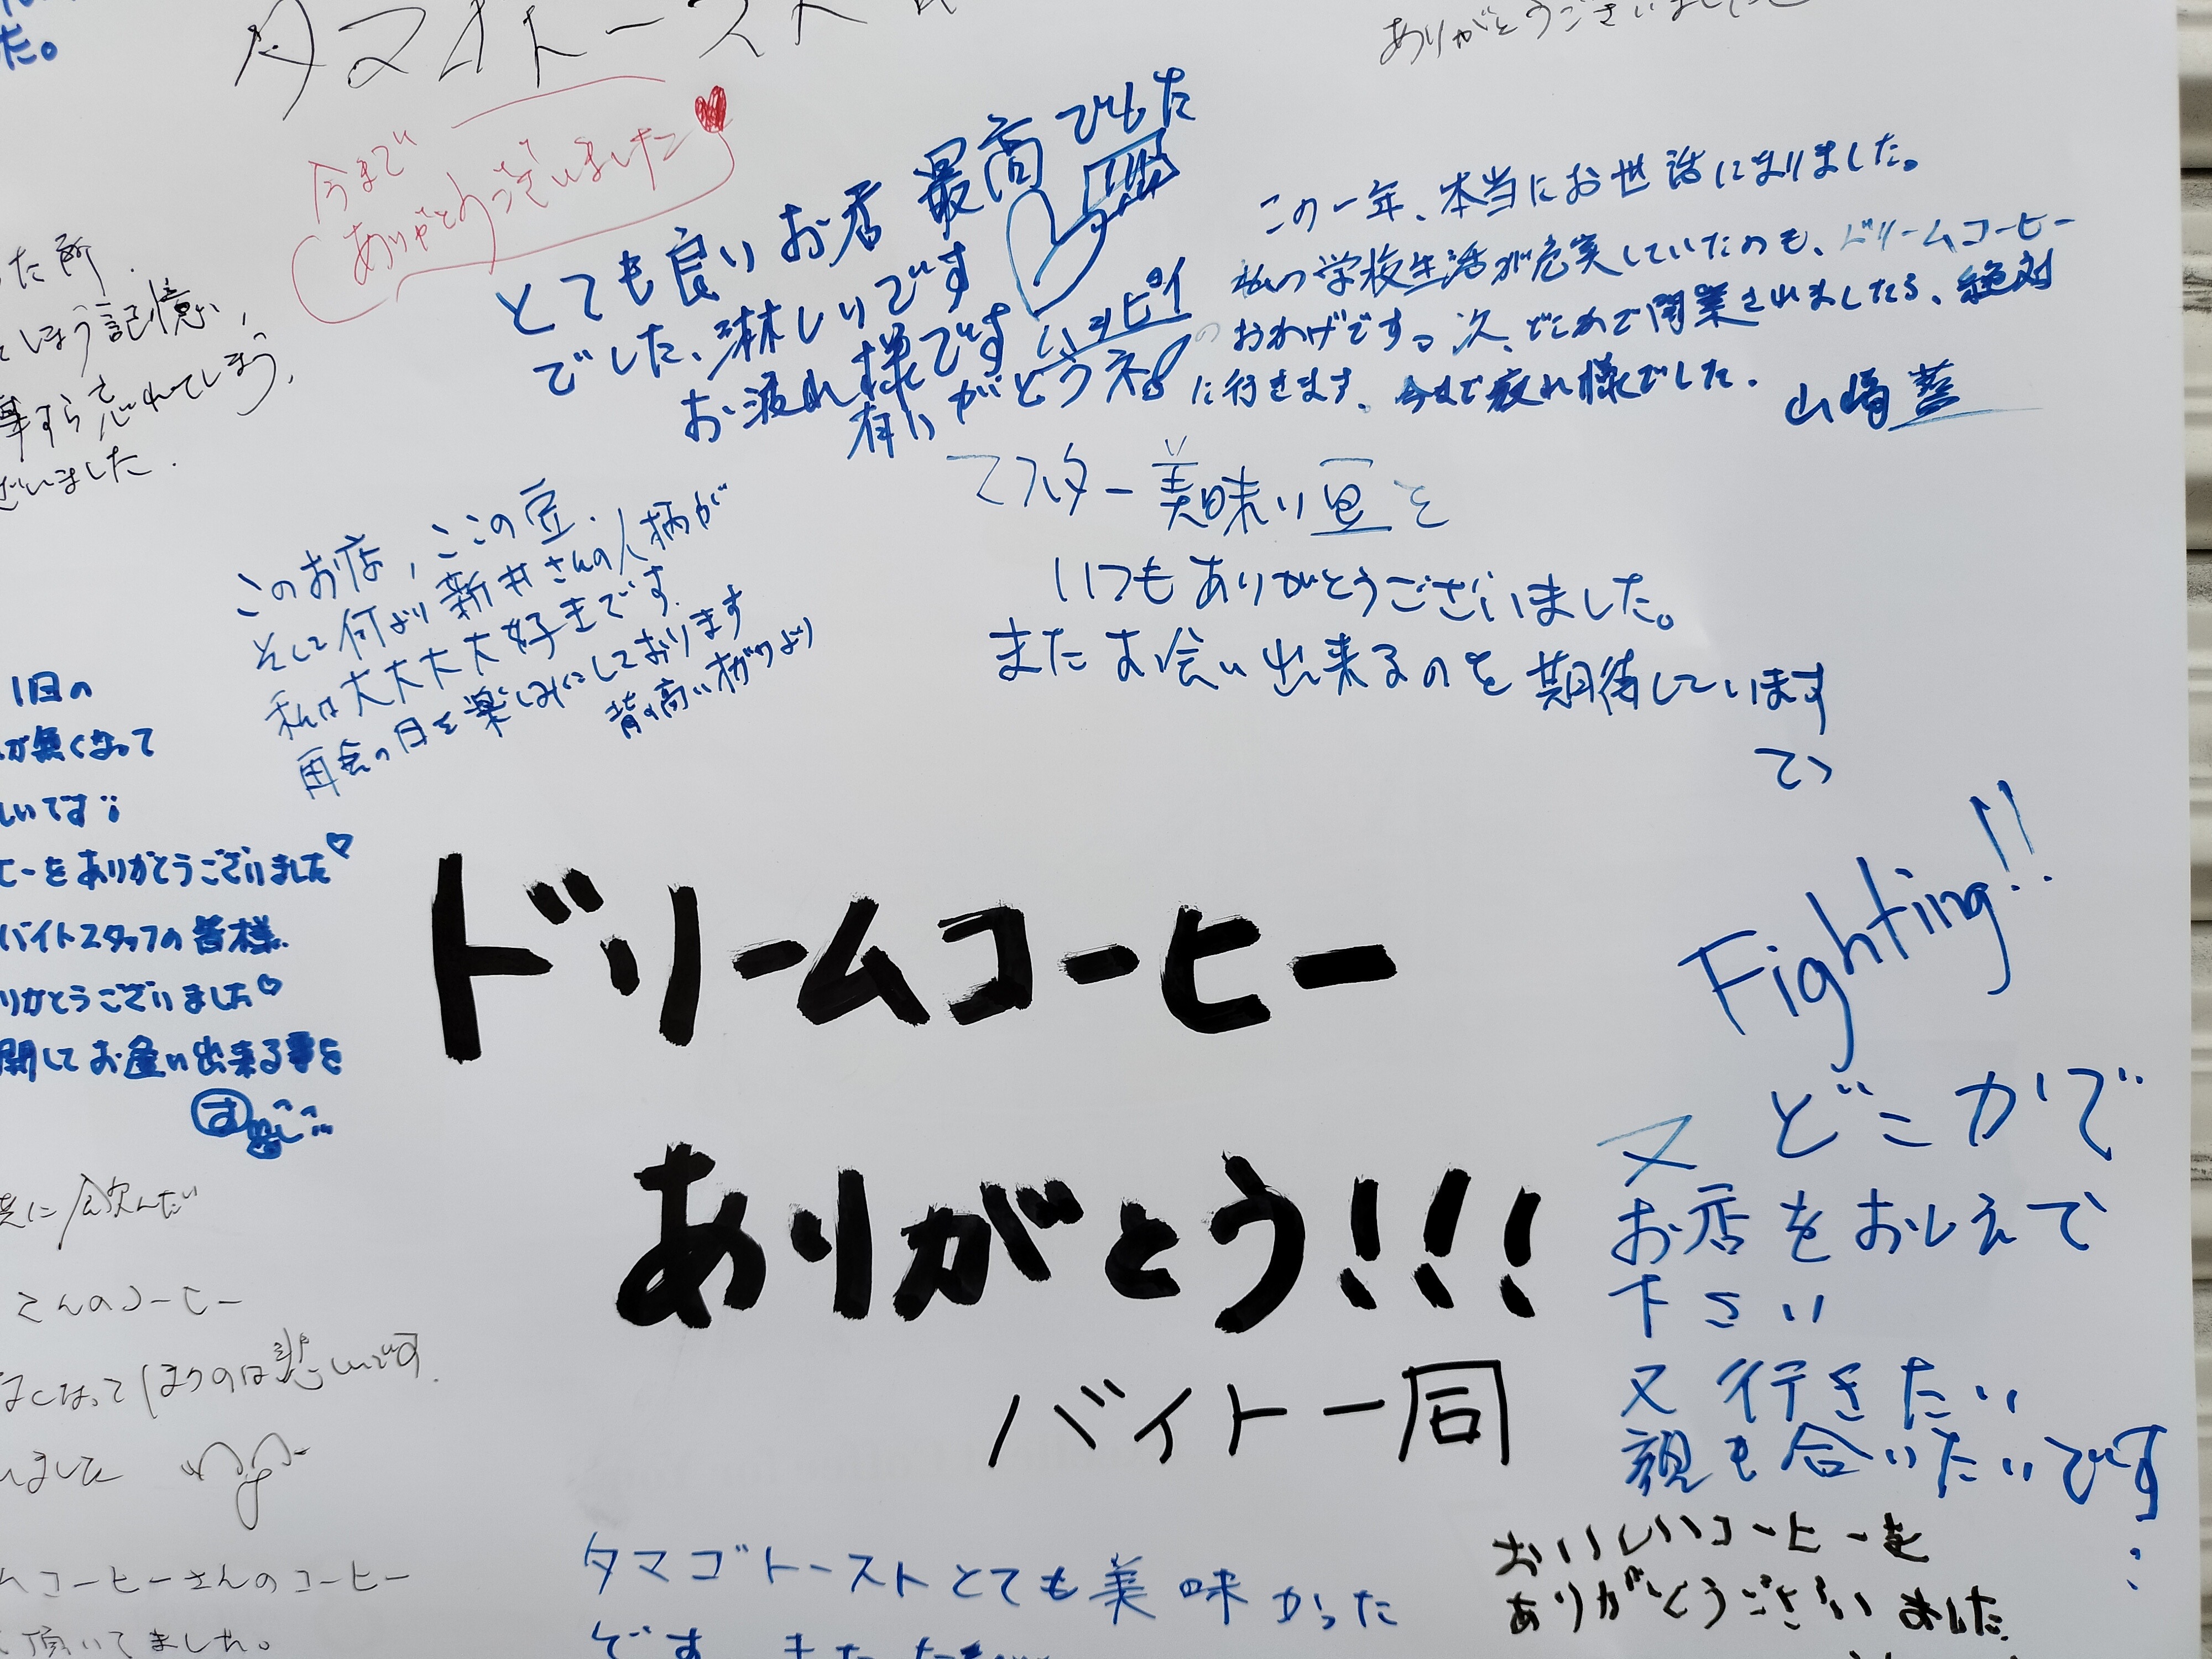 た。
タマゴトースト
ありがとうございました
今まで
ありがとうございました
とても良いお店 最高でした
でした、淋しいです
お疲れ様です
有りがとうネ!
この一年、本当にお世話になりました。
私の学校生活が充実していたのも、ドリームコーヒー
のおかげです。次、どこかで開業されましたら、絶対
に行きます。今まで疲れ様でした。
山崎
た所.
しまう記憶、
事すら忘れてしまう、
ざいました.
マスター美味い豆を
いつもありがとうございました。
またお会い出来るのを期待しています
このお店、ここの豆、
そして何より新井さんの人柄が
私は大大大大好きです.
再会の日を楽しみにしております
背の高い
より
1日の
が無くなって
しいです
ヒーをありがとうございました♡
バイトスタッフの皆様
りがとうございました♡
開してお逢い出来る事を
ドリームコーヒー
ありがとう!!!
バイト一同
Fightiing!!
又どこかで
お店をおしえて
下さい
又行きたい
親も合いたいです
共に飲んだ
さんのコーヒー
なってしまうのは悲しいです.
いました
ムコーヒーさんのコーヒー
頂いてました。
タマゴトーストとても美味かった
です
おいしいコーヒーを
ありがとうございました